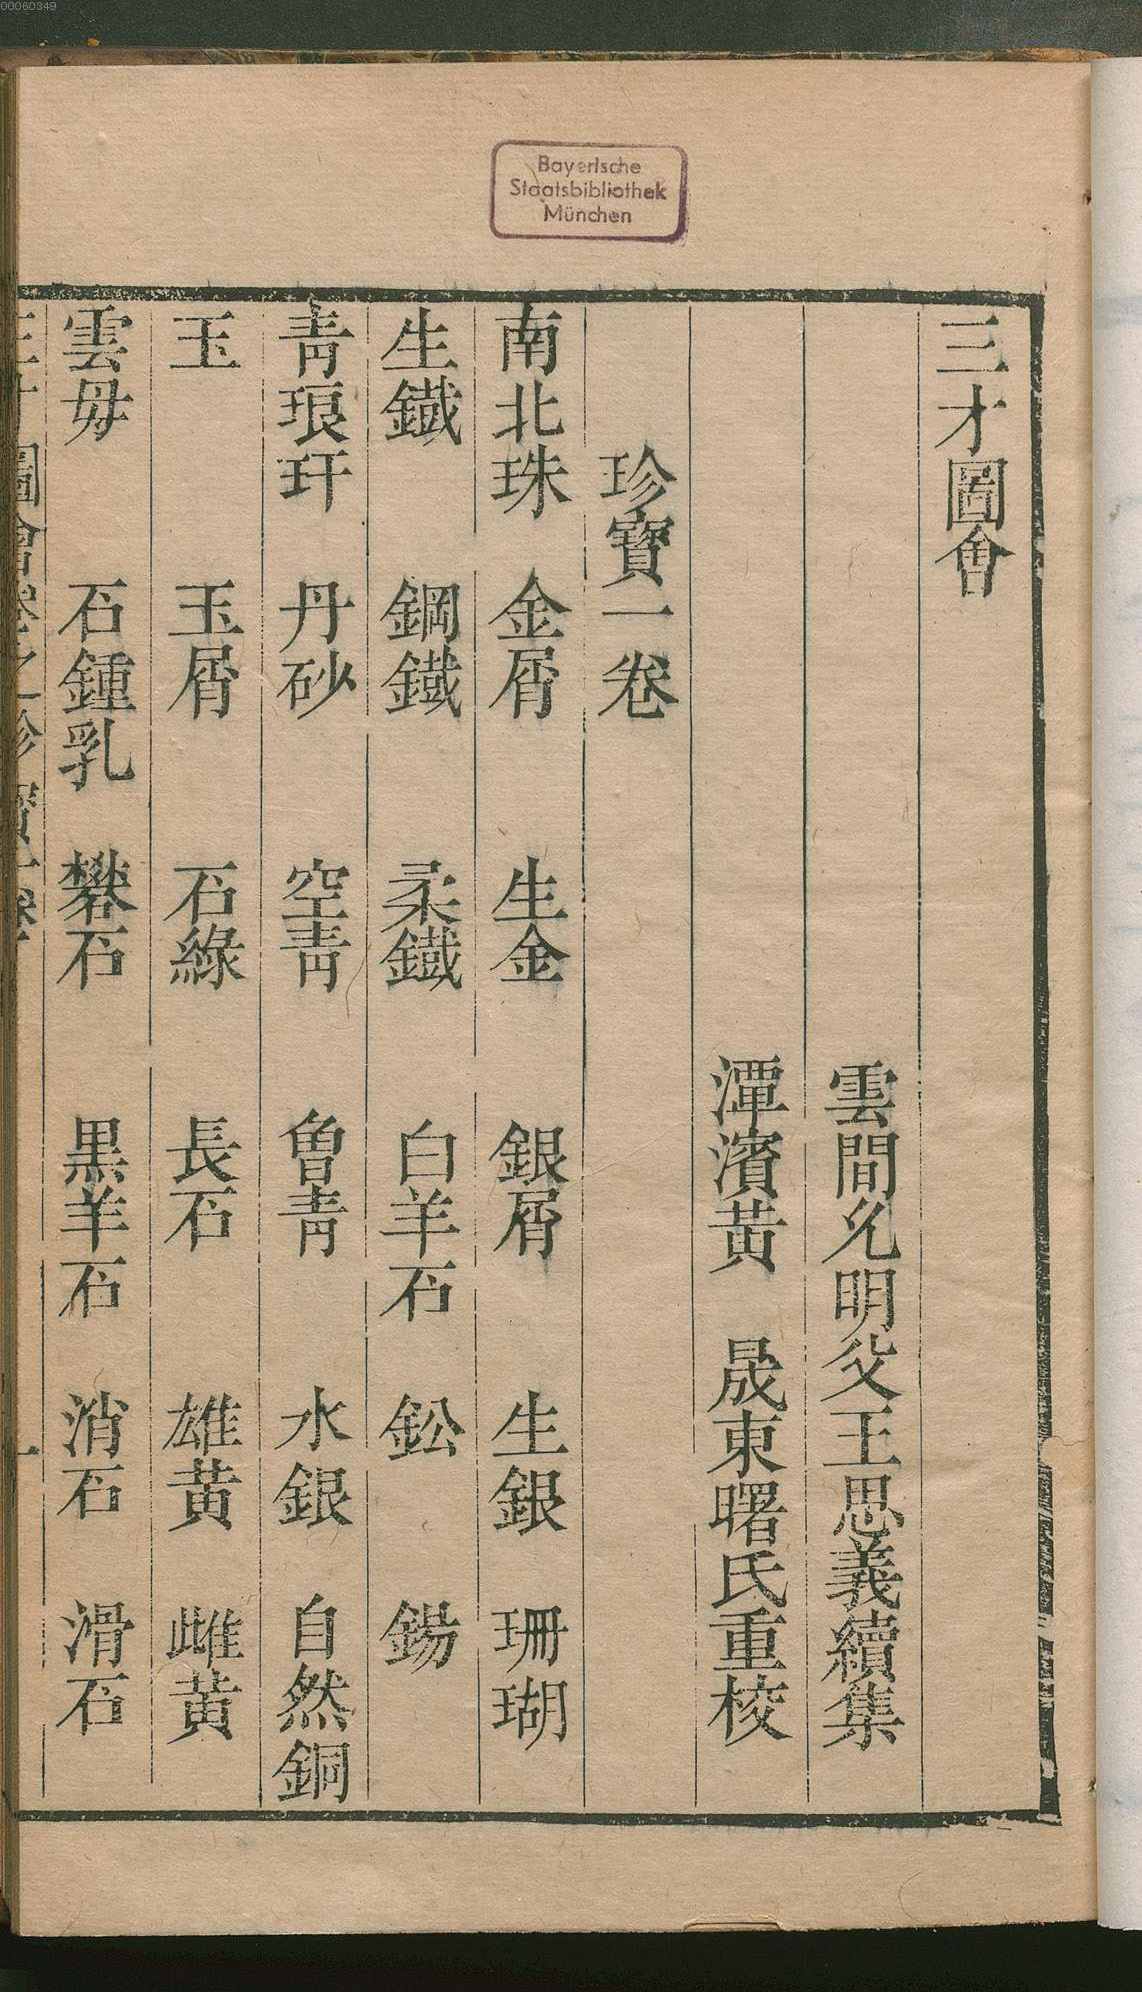 00060349
Bayerische
Staatsbibliothek
München
三才圖會
雲間允明父王思義續集
潭濱黃 晟東曙氏重校
珍寶一卷
南北珠 金屑 生金 銀屑 生銀 珊瑚
生鐵 鋼鐵 柔鐵 白羊石 鈆 鍚
靑琅玕 丹砂 空靑 曾靑 水銀 自然銅
玉 玉屑 石綠 長石 雄黃 雌黃
雲母 石鍾乳 礬石 黑羊石 消石 滑石
三才圖會卷之 珍寶一卷 一